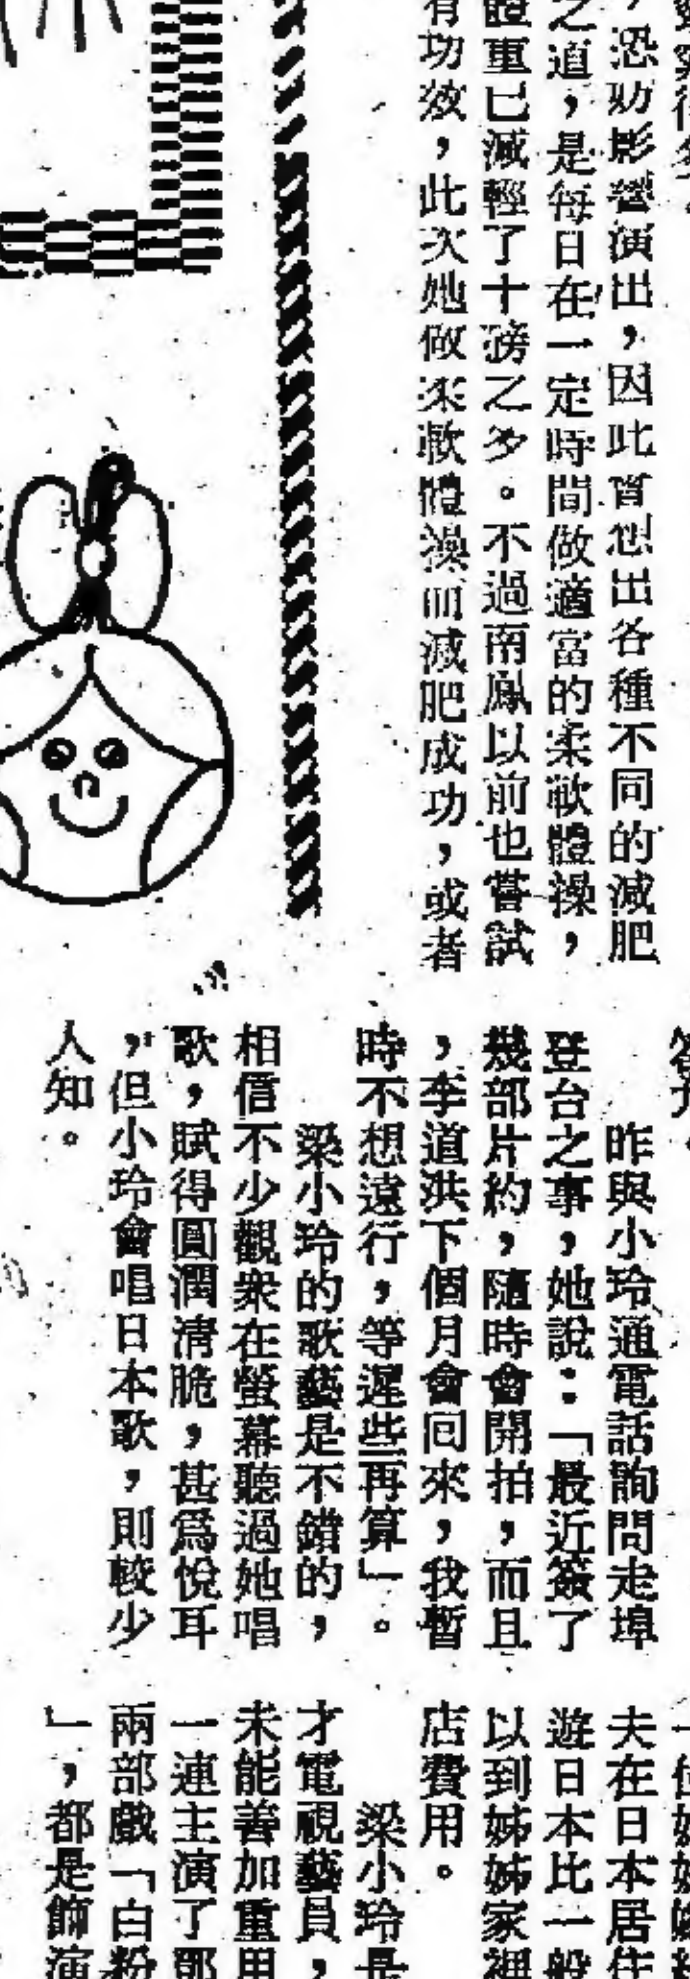 ，恐妨影響演出，因此嘗想出各種不同的減肥
之道，是每日在一定時間做適當的柔軟體操，
體重已減輕了十磅之多。不過南鳳以前也嘗試
有功效，此次她做柔軟體操而減肥成功，或者
昨與小玲通電話詢問走埠
登台之事，她說：「最近簽了
幾部片約，隨時會開拍，而且
，李道洪下個月會回來，我暫
時不想遠行，等遲些再算」。
梁小玲的歌藝是不錯的，
相信不少觀衆在螢幕聽過她唱
歌，賦得圓潤清脆，甚爲悅耳
，但小玲會唱日本歌，則較少
人知。
夫在日本居住
遊日本比一般
以到姊姊家裡
店費用。
梁小玲是
才電視藝員，
未能善加重用
一連主演了那
兩部戲「白粉
」，都是飾演